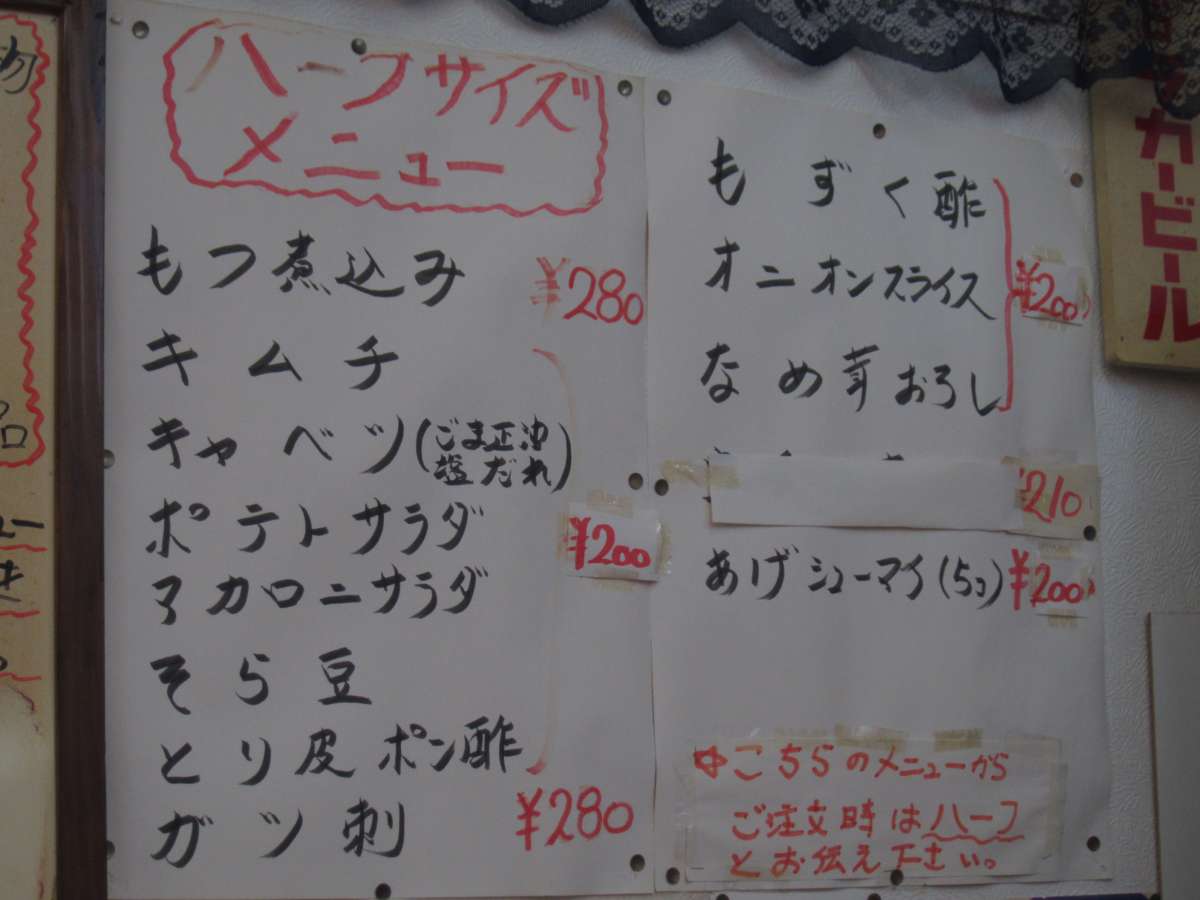 ハーフサイズ
メニュー
もつ煮込み ¥280
キムチ
キャベツ(ごま正油
塩だれ)
ポテトサラダ ¥200
マカロニサラダ
そら豆
とり皮ポン酢
ガツ刺 ¥280
もずく酢
オニオンスライス ¥200
なめ茸おろし
210
あげシューマイ(5コ) ¥200
こちらのメニューから
ご注文時はハーフ
とお伝え下さい。
ガービール
物